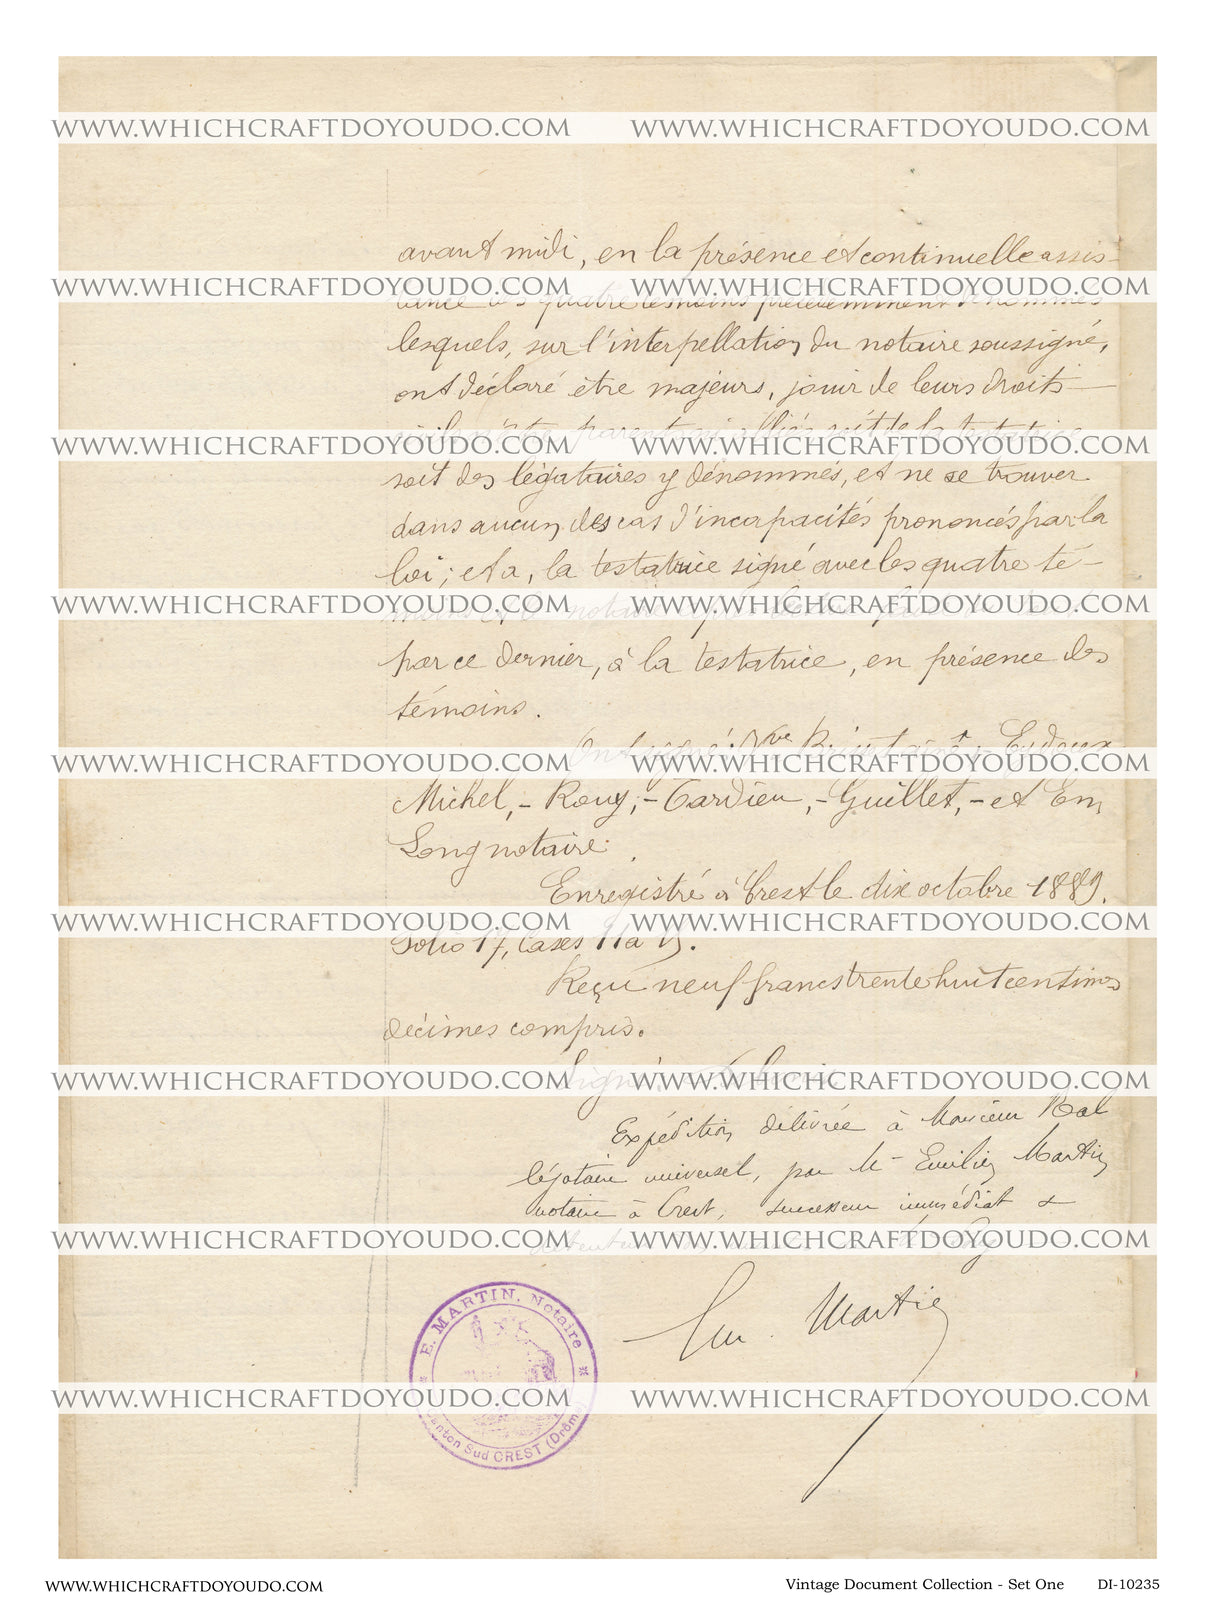 WWW.WHICHCRAFTDOYOUDO.COM WWW.WHICHCRAFTDOYOUDO.COM
avant midi, en la présence et continuelle assis-
WWW.WHICHCRAFTDOYOUDO.COM WWW.WHICHCRAFTDOYOUDO.COM
tance des quatre témoins précédemment dénommés
lesquels, sur l'interpellation du notaire soussigné,
ont déclaré être majeurs, jouir de leurs droits
WWW.WHICHCRAFTDOYOUDO.COM WWW.WHICHCRAFTDOYOUDO.COM
civils n'être parents ni alliés soit de la testatrice
soit des légataires y dénommés, et ne se trouver
dans aucun des cas d'incapacités prononcés par la
loi; et a, la testatrice signé avec les quatre té-
WWW.WHICHCRAFTDOYOUDO.COM WWW.WHICHCRAFTDOYOUDO.COM
moins et le notaire après lecture
par ce dernier, à la testatrice, en présence des
témoins.
WWW.WHICHCRAFTDOYOUDO.COM WWW.WHICHCRAFTDOYOUDO.COM
Ont signé: Vve
Michel, - Rouy, - Tardieu, - Guillet, - et Em
Long notaire.
Enregistré à Crest le dix octobre 1889.
WWW.WHICHCRAFTDOYOUDO.COM WWW.WHICHCRAFTDOYOUDO.COM
Folio 17, Cases
Reçu neuf francs trente huit centimes
décimes compris.
WWW.WHICHCRAFTDOYOUDO.COM WWW.WHICHCRAFTDOYOUDO.COM
Signé:
Expédition délivrée à Monsieur
légataire universel, par Me Emilien Martin
notaire à Crest, successeur immédiat &
WWW.WHICHCRAFTDOYOUDO.COM WWW.WHICHCRAFTDOYOUDO.COM
détenteur des minutes de Me Long
E. MARTIN, Notaire
Em. Martin
WWW.WHICHCRAFTDOYOUDO.COM WWW.WHICHCRAFTDOYOUDO.COM
Canton Sud CREST (Drôme)
WWW.WHICHCRAFTDOYOUDO.COM Vintage Document Collection - Set One DI-10235